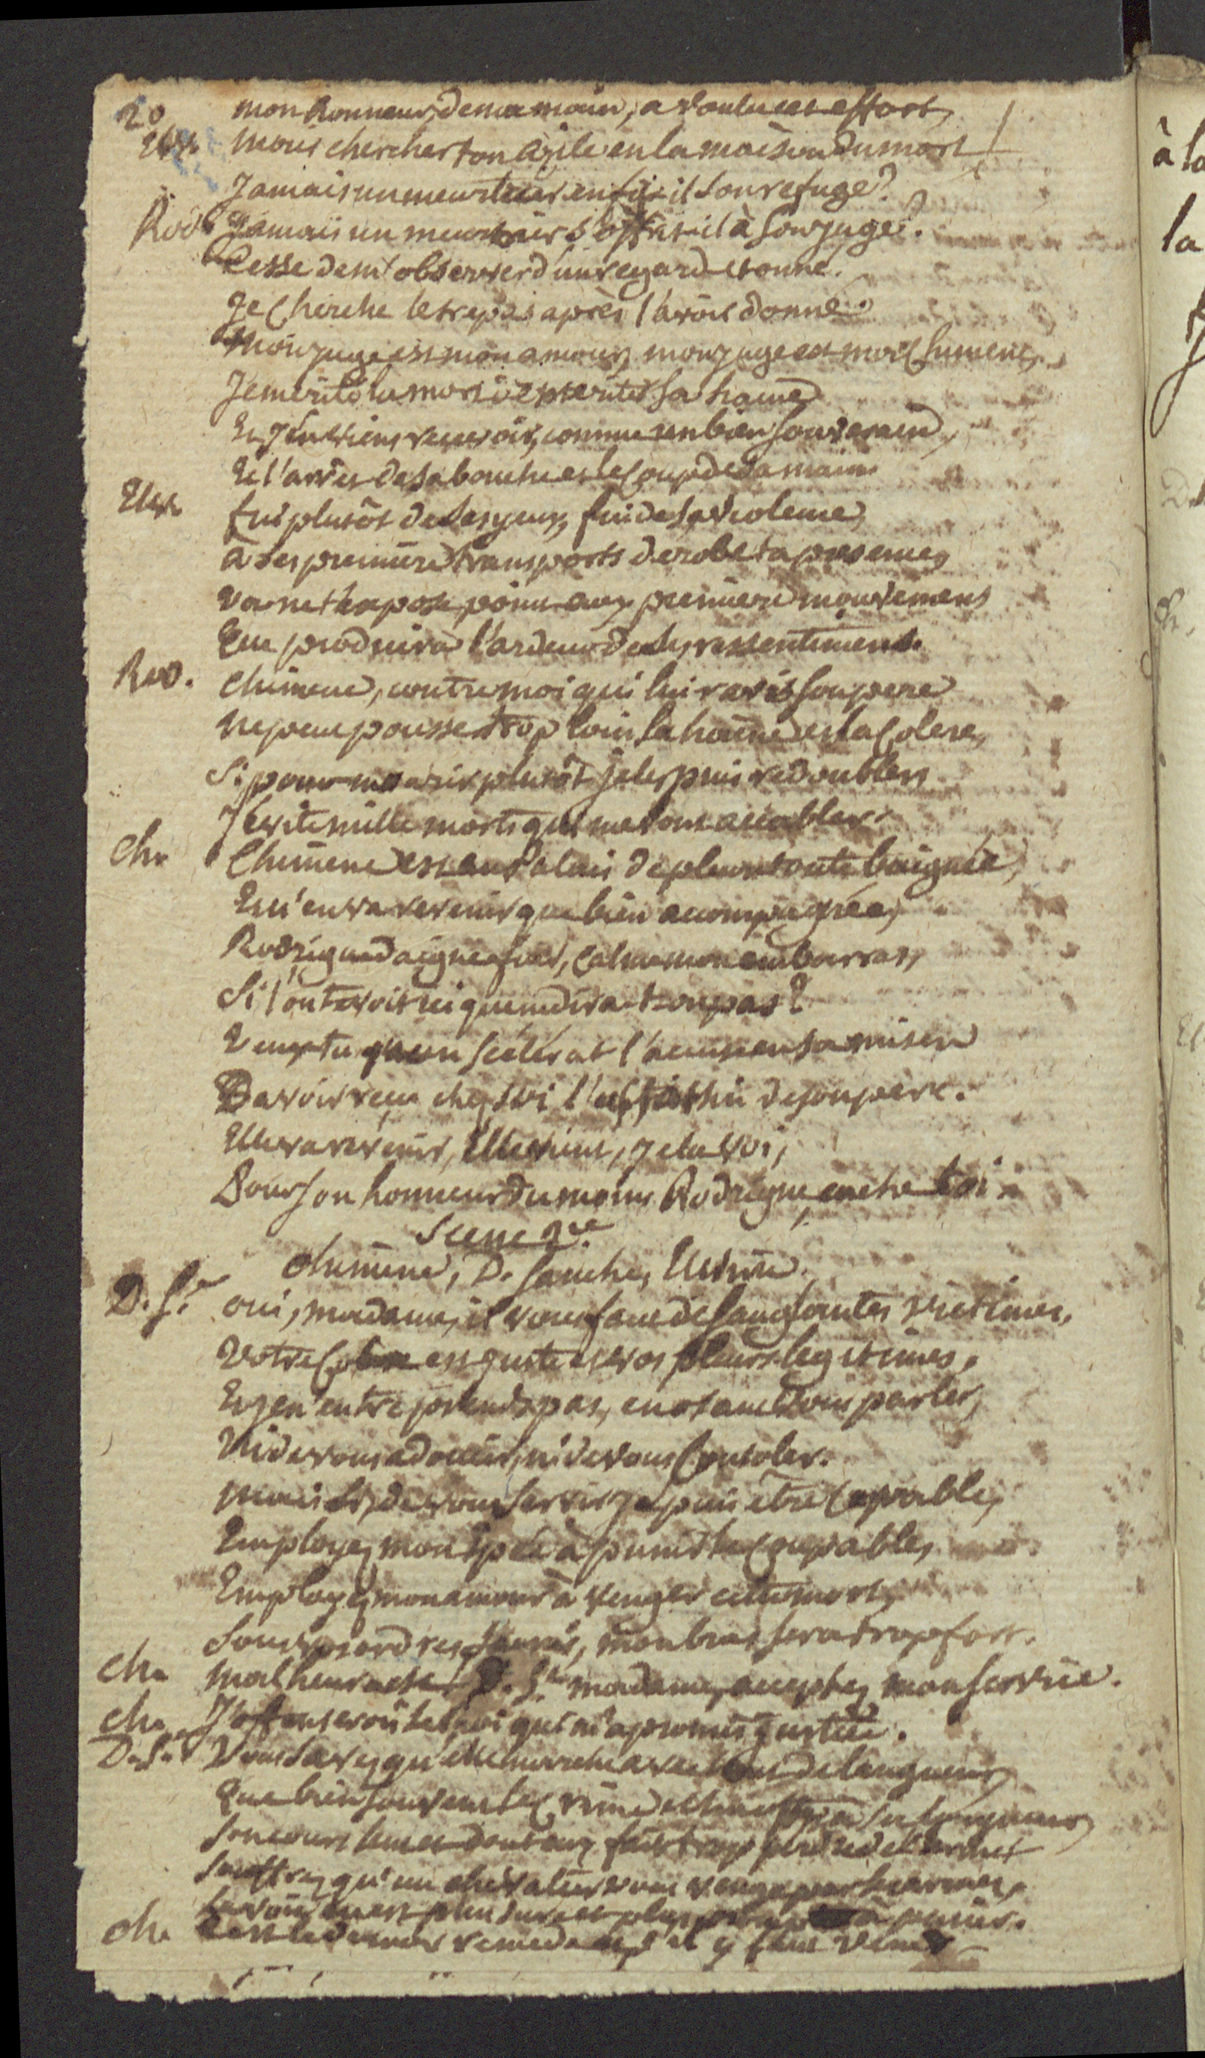 20 mon honneur, de ma main, a voulu cet effort,
Elv. mais chercher ton azile en la maison du mort!
Jamais un meurtrier en fit-il son refuge?
Rod. Jamais un meurtrier s'offrit-il à son juge?
Cesse de m'observer d'un regard etonné.
Je cherche le trepas après l'avoir donné.
Mon juge est mon amour, mon juge est moi Chimene,
Je merite la mort de meriter sa haine
Et j'en viens recevoir, comme un bien souverain,
Et l'arrêt de sa bouche et le coup de sa main.
Elv. fui plutôt de ses yeux, fui de sa violence,
a ses premiers transports derobe ta presence,
va ne t'expose point aux premiers mouvemens
Que produira l'ardeur de ses ressentimens.
Rod. Chimene, contre moi qui lui ravis son pere
ne peut pousser trop loin sa haine et sa colere,
Si pour mourir plutôt je les puis redoubler
J'évite mille morts qui me vont accabler.
Ch. Chimene est au palais de pleurs toute baignée,
Et n'en va revenir que bien acompagnée,
Rodrigue daigne fuir, calme mon embarras,
Si l'on te voit ici que ne dira-t-on pas?
Veux-tu qu'un scélérat l'accuse en sa misere
D'avoir reçu chez soi l'assassin de son père.
Elle va revenir, Elle vient, je la voi,
Pour son honneur du moins Rodrigue cache toi.
Scene 2e.
Chimene, D. Sanche, Elvire.
D. S. oui, madame, il vous faut de sanglantes victimes,
Votre colere est juste et vos pleurs legitimes.
Et je n'entreprends pas, en osant vous parler,
Ni de vous adoucir, ni de vous consoler.
mais si, de vous servir je puis être capable,
Employez mon épée à punir le coupable,
Employez mon amour à venger cette mort,
Sous vos ordres, mon bras sera trop fort.
Ch. malheureuse! D. S. madame, acceptez mon service.
Ch. J'offenserois le roi qui m'a promis justice.
D. S. Vous savez qu'elle marche avec tant de langueur
Que bien souvent le crime echappe à sa longueur
Son cours lent et douteux fait trop perdre de larmes
Souffrez qu'un chevalier vous venge par les armes.
La voie en est plus sure et plus prompte à punir.
Ch. C'est le dernier remede, s'il y faut venir